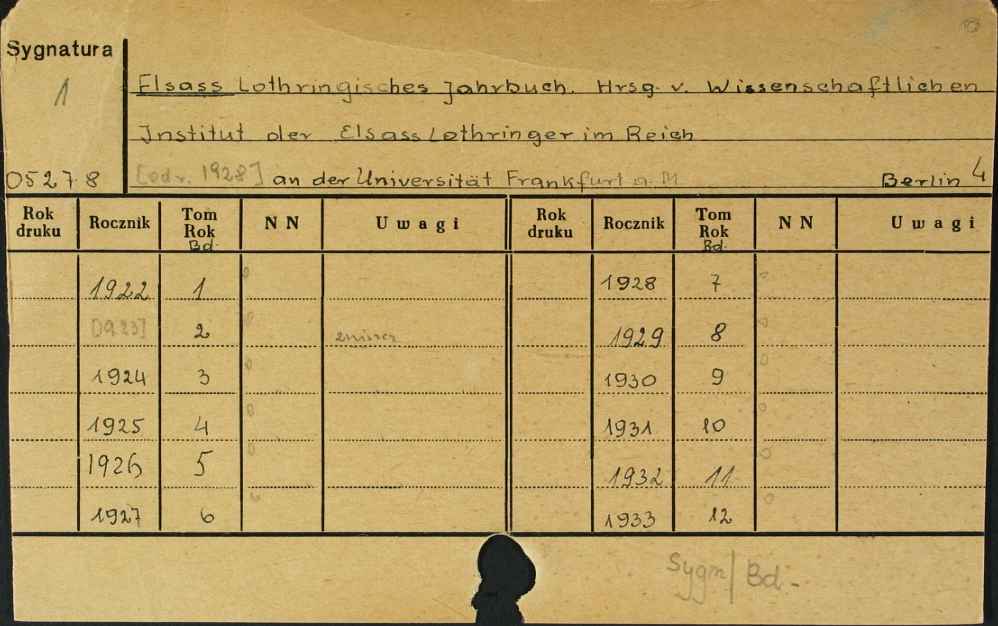 Sygnatura
1
05278
Elsass Lothringisches Jahrbuch. Hrsg. v. Wissenschaftlichen
Institut der Elsass Lothringer im Reich
[od r. 1928] an der Universität Frankfurt a. M
Berlin 4
Rok druku Rocznik Tom Rok Bd. NN Uwagi Rok druku Rocznik Tom Rok Bd. NN Uwagi
1922 1 1928 7
[1923] 2 1929 8
1924 3 1930 9
1925 4 1931 10
1926 5 1932 11
1927 6 1933 12
Sygn/Bd.-